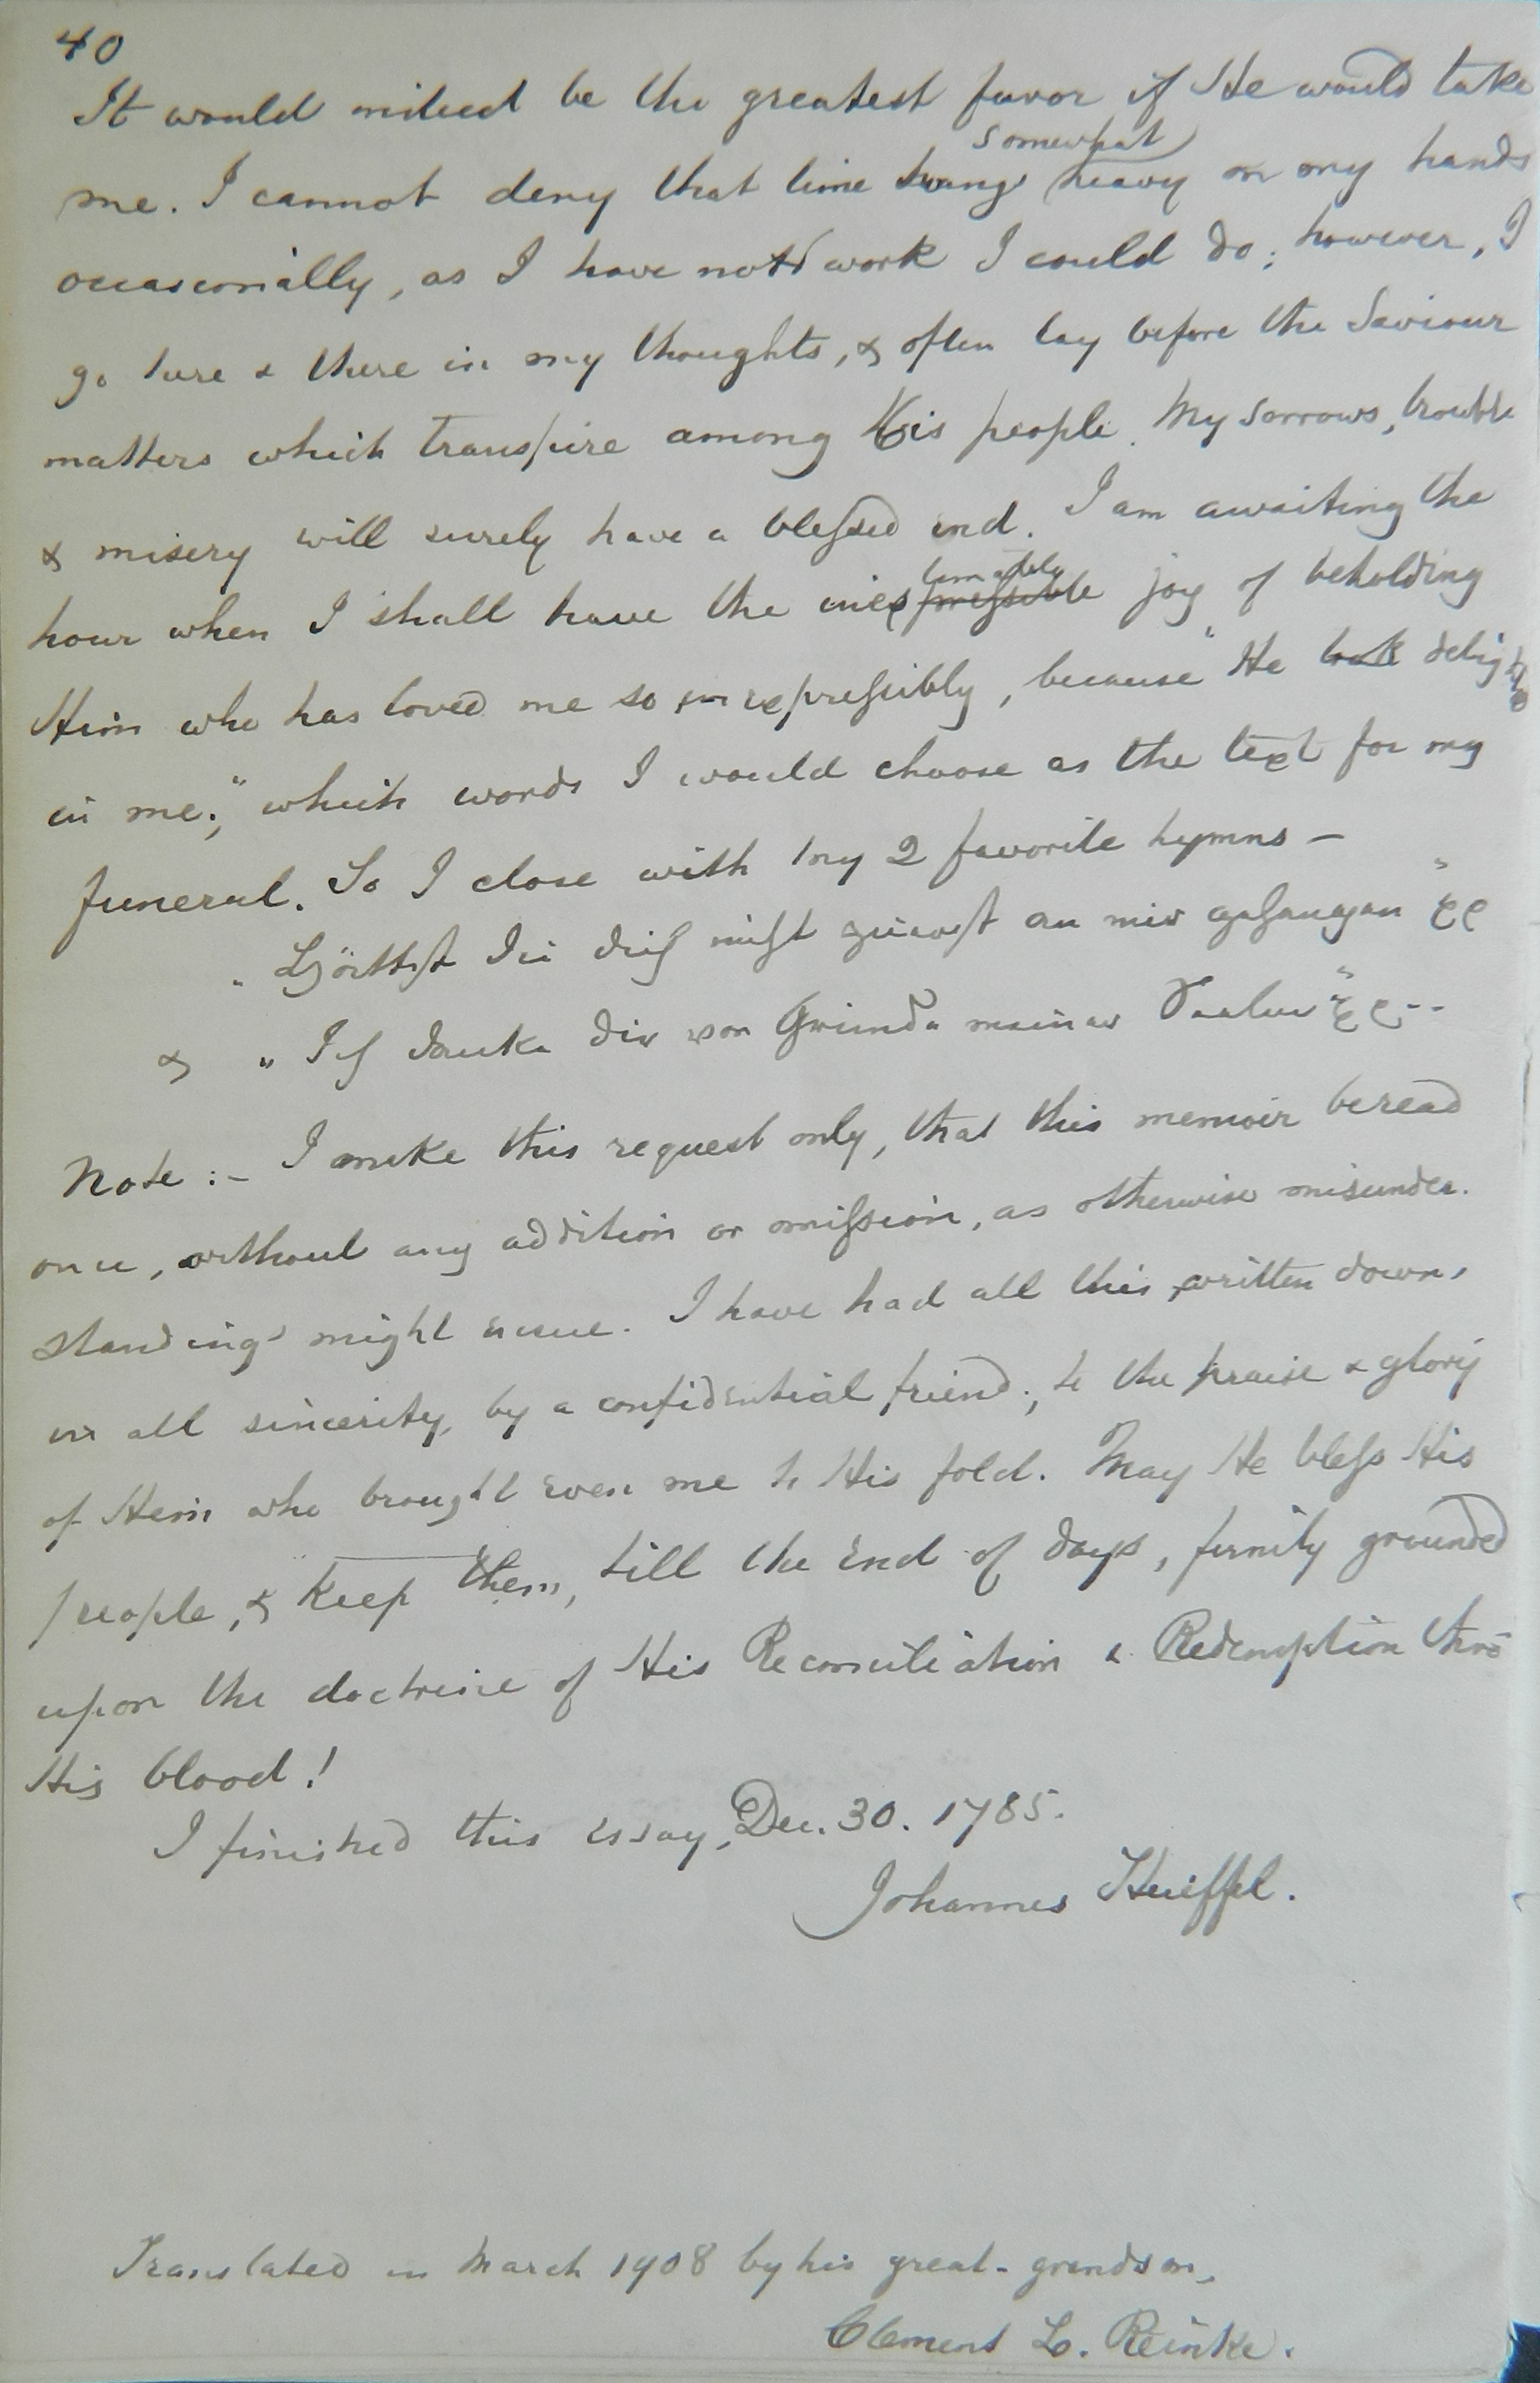 40
It would indeed be the greatest favor if He would take
somewhat
me. I cannot deny that time hangs heavy on my hands
occasionally, as I have not work I could do; however, I
go here & there in my thoughts, & often lay before the Saviour
matters which transpire among His people. My sorrows, trouble
& misery will surely have a blessed end. I am awaiting the
hour when I shall have the joy of beholding
Him who has loved me so inexpressibly, because "He took delight
in me;" which words I would choose as the text for my
funeral. So I close with my 2 favorite hymns —
"Hättst Du dich nicht zuerst an mir gehangen" &c
& "Ich danke dir von Grunde meiner Seelen" &c--
Note:- I make this request only, that this memoir be read
once, without any addition or omission, as otherwise misunder-
standings might ensue. I have had all this written down,
in all sincerity, by a confidential friend; to the praise & glory
of Him who brought even me to His fold. May He bless His
people, & keep them, till the end of days, firmly grounded
upon the doctrine of His Reconciliation & Redemption thro
His blood!
I finished this essay, Dec. 30. 1785.
Johannes
Translated in March 1908 by his great-grandson,
Clement L. Reinke.